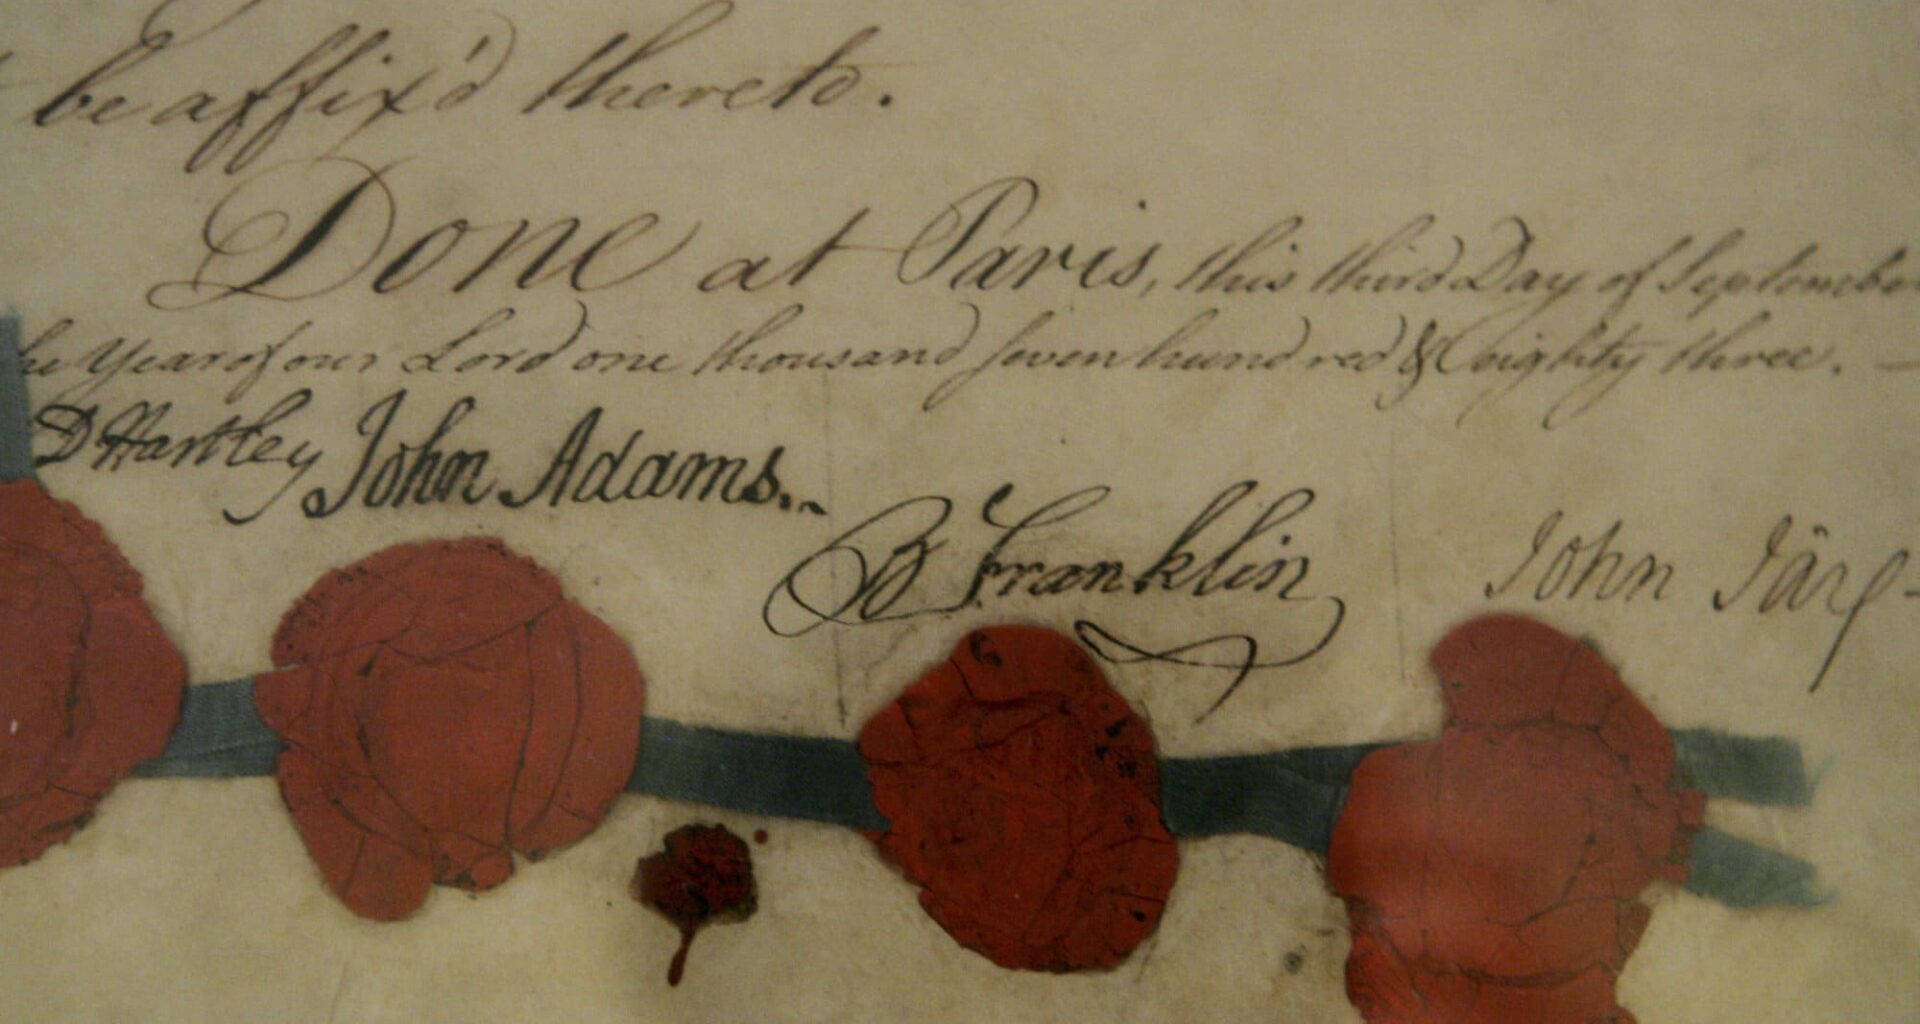 be affix'd thereto.
Done at Paris, this third Day of September
he Year of our Lord one thousand seven hundred & eighty three. —
D Hartley John Adams.
B Franklin John Jay -